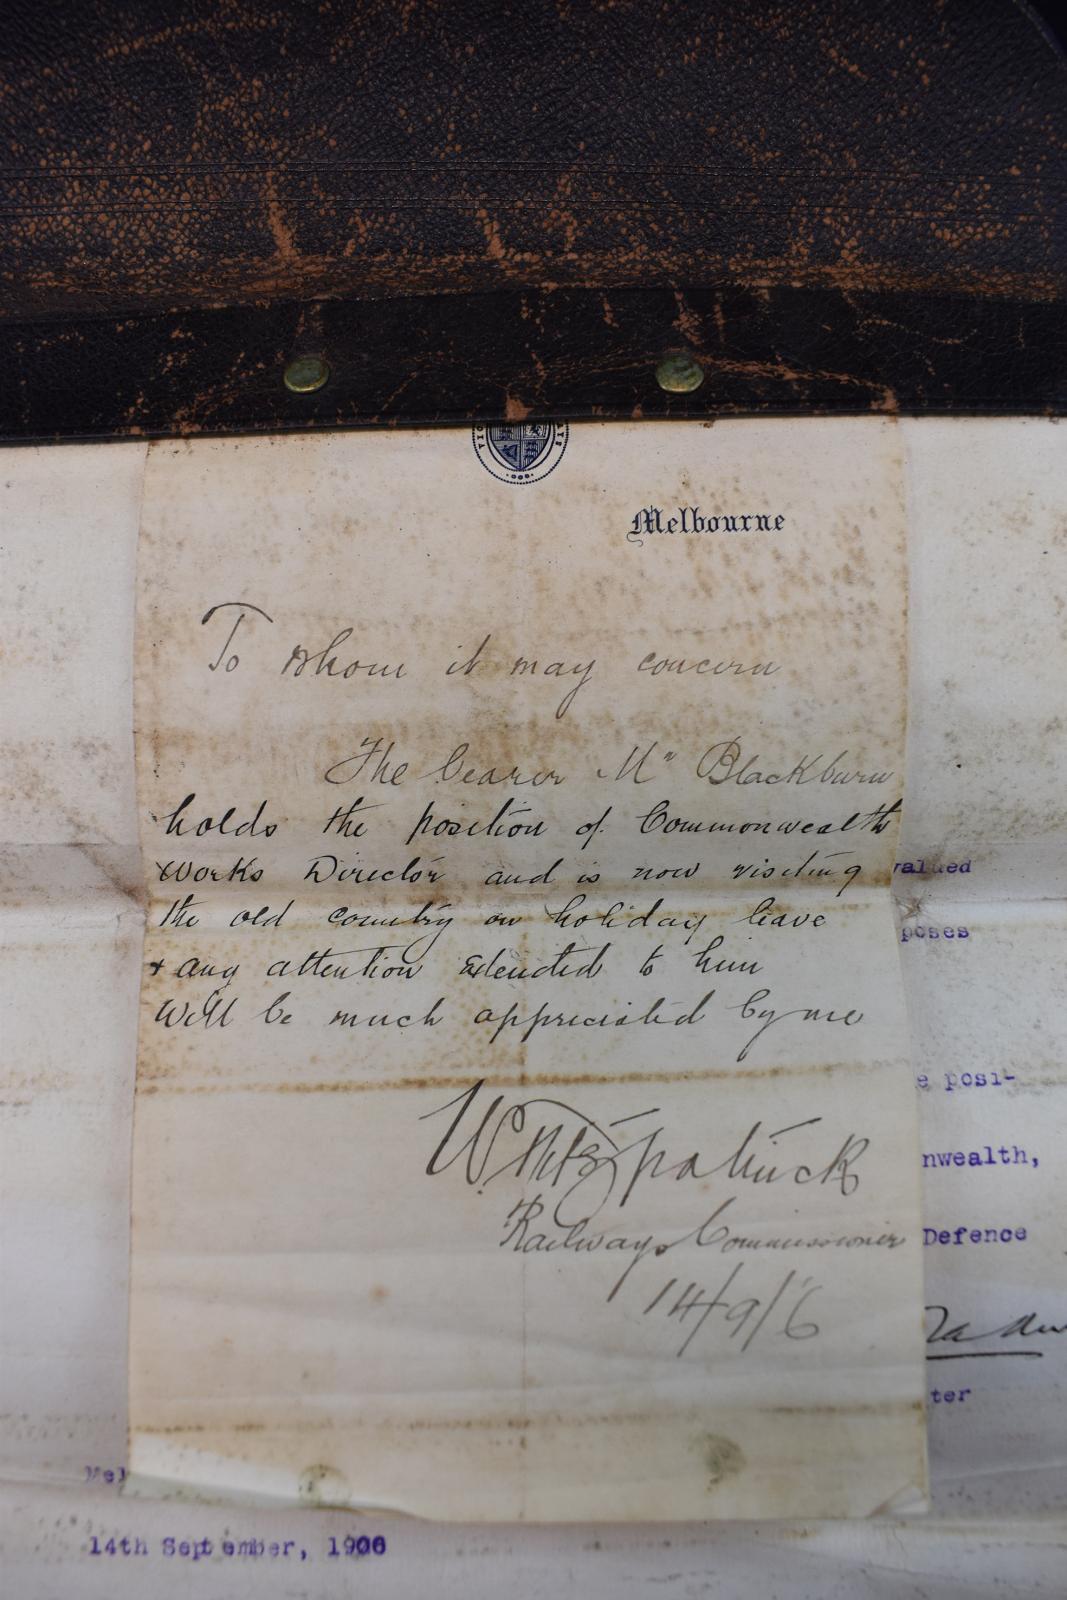 Melbourne
To whom it may concern
The bearer Mr Blackburn
holds the position of Commonwealth
Works Director and is now visiting
the old country on holiday leave
+ any attention extended to him
Will be much appreciated by me
W. Fitzpatrick
Railways Commissioner
14/9/6
valued
poses
e posi-
nwealth,
Defence
ter
Mel
14th September, 1906